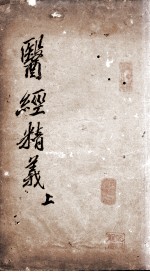 醫經精義上